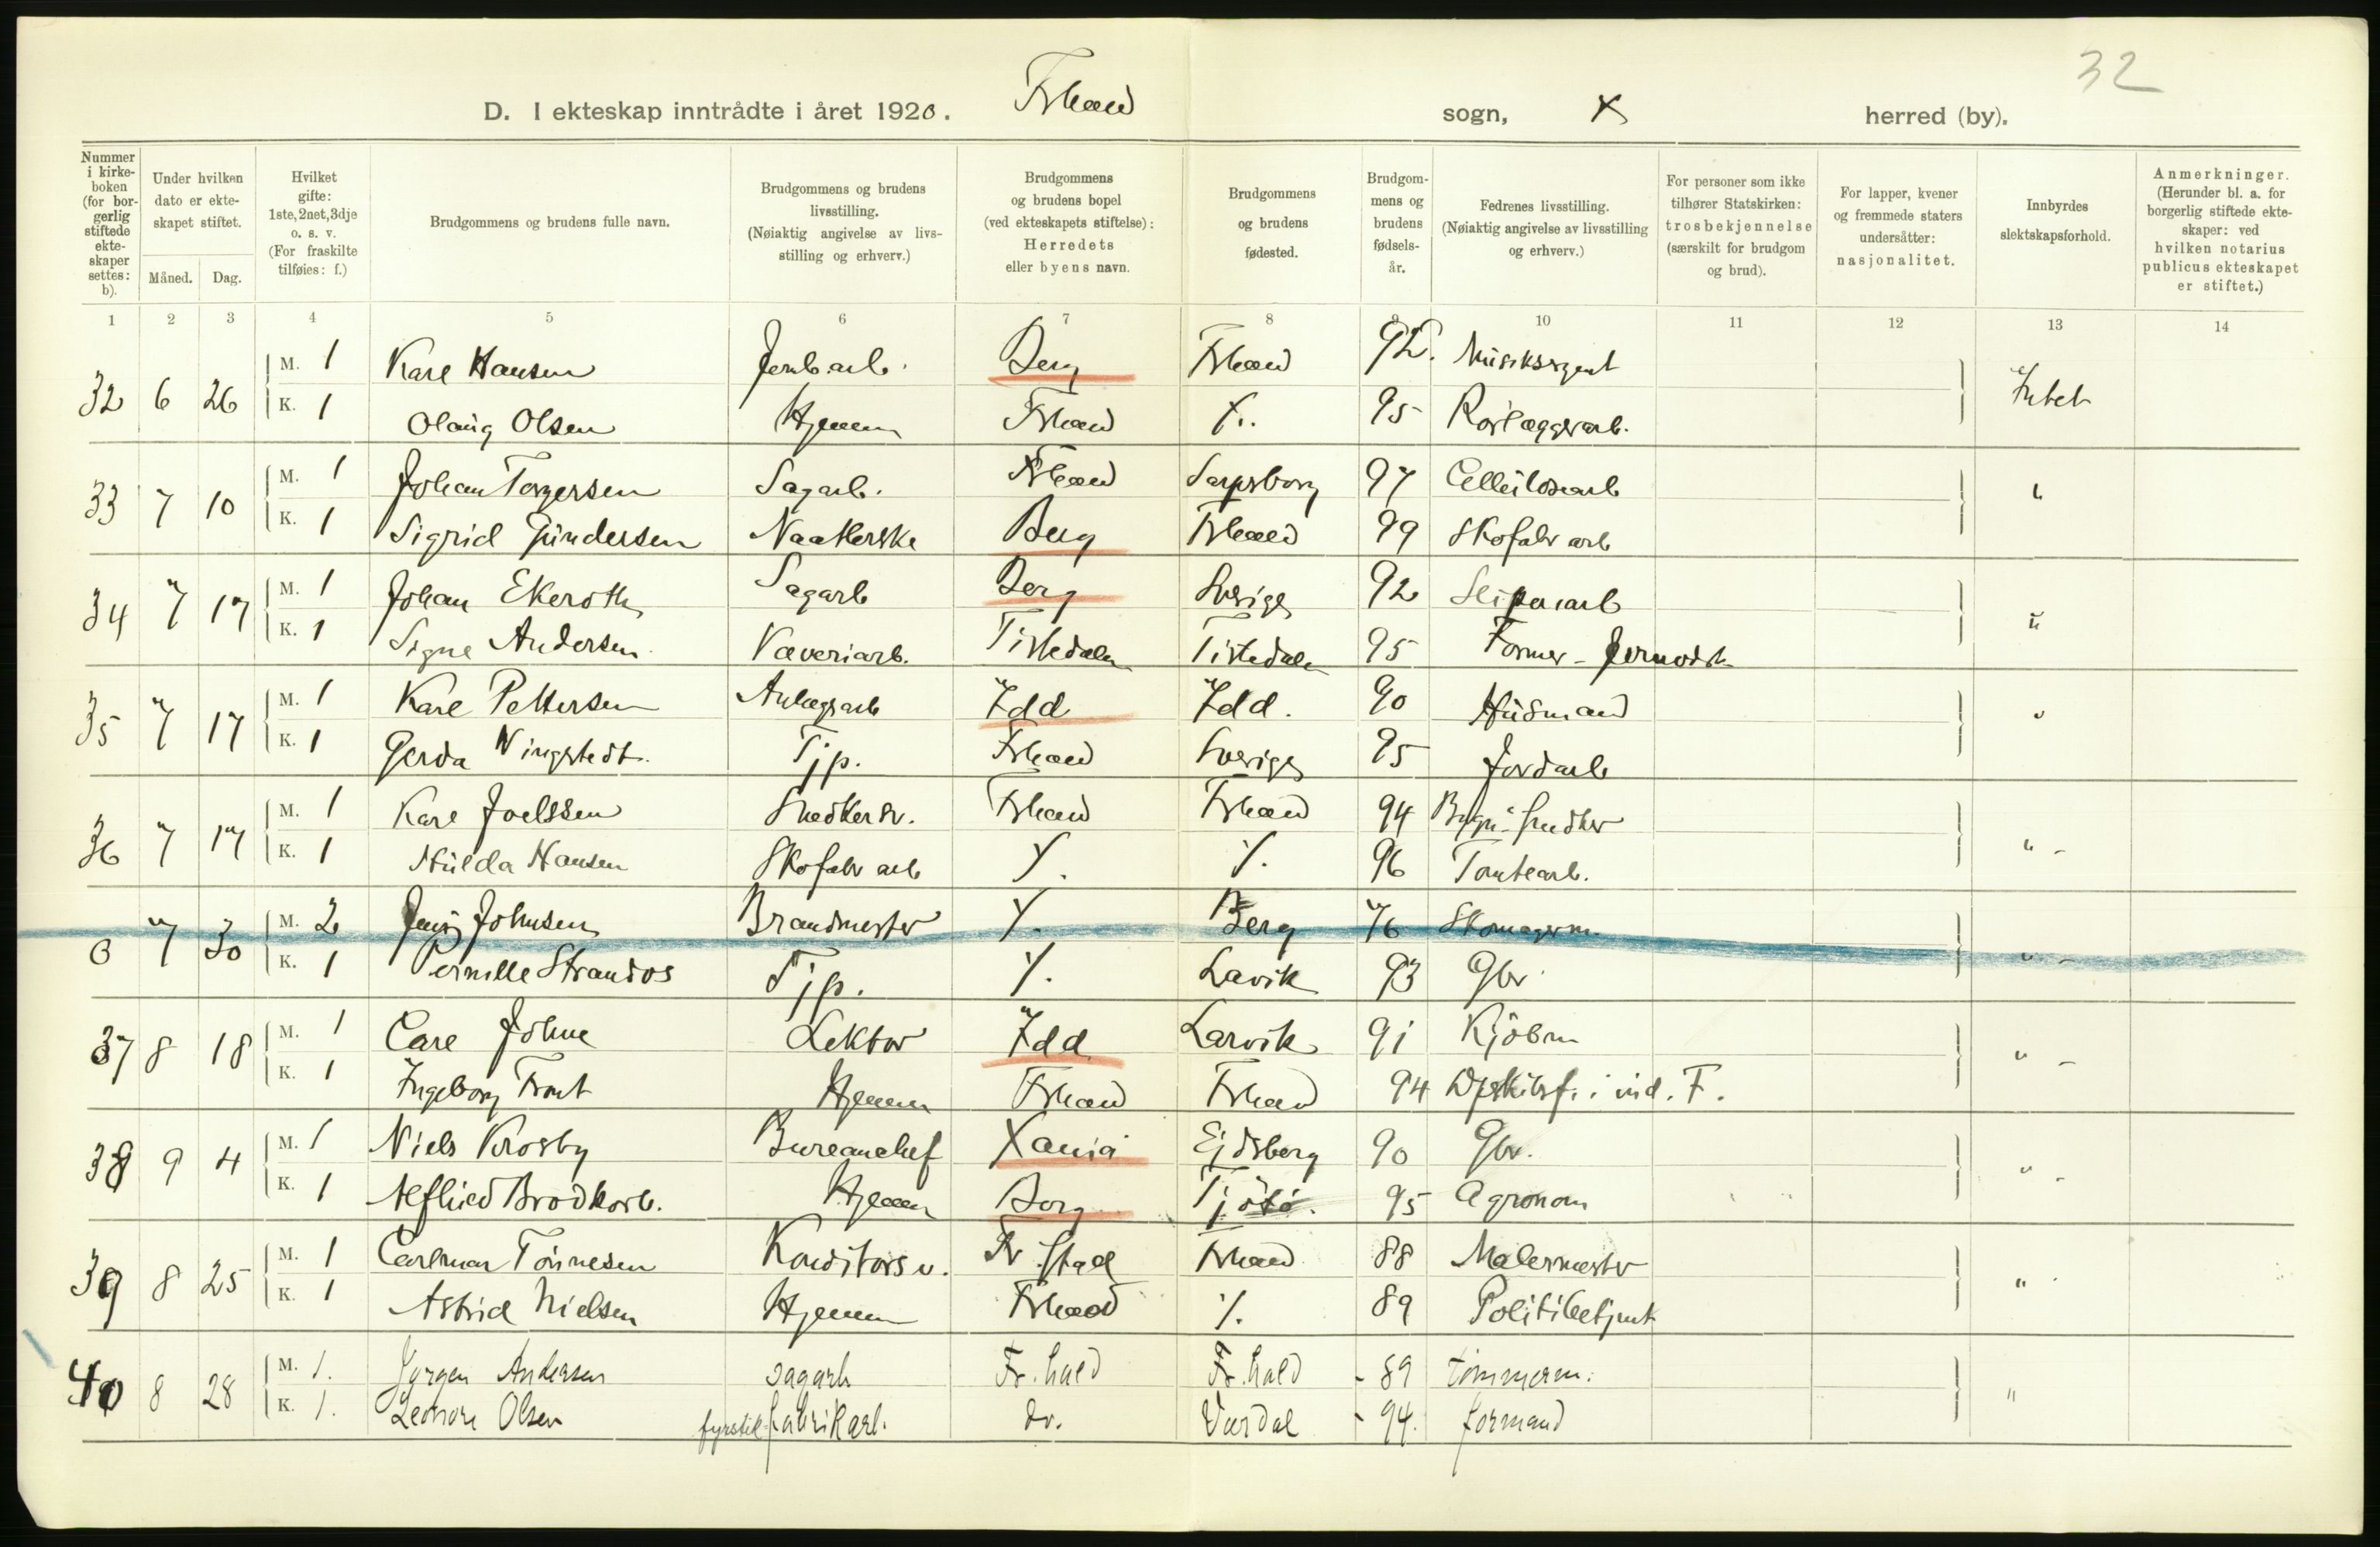 32
D. I ekteskap inntrådte i året 1920. Frhald sogn, herred (by).
Nummer i kirkeboken (for borgerlig stiftede ekteskaper settes: b).
Under hvilken dato er ekteskapet stiftet.
Måned. Dag.
Hvilket gifte: 1ste, 2net, 3dje o. s. v. (For fraskilte tilføies: f.)
Brudgommens og brudens fulle navn.
Brudgommens og brudens livsstilling. (Nøiaktig angivelse av livsstilling og erhverv.)
Brudgommens og brudens bopel (ved ekteskapets stiftelse): Herredets eller byens navn.
Brudgommens og brudens fødested.
Brudgommens og brudens fødselsår.
Fedrenes livsstilling. (Nøiaktig angivelse av livsstilling og erhverv.)
For personer som ikke tilhører Statskirken: trosbekjennelse (særskilt for brudgom og brud).
For lapper, kvener og fremmede staters undersåtter: nasjonalitet.
Innbyrdes slektskapsforhold.
Anmerkninger. (Herunder bl. a. for borgerlig stiftede ekteskaper: ved hvilken notarius publicus ekteskapet er stiftet.)
1 2 3 4 5 6 7 8 9 10 11 12 13 14
32 6 26 M. 1 Karl Hansen Jernb.arb. Berg Frhald 92. Musiksergent Intet
K. 1 Olaug Olsen Hjemme Frhald 95 Rørlæggerarb.
33 7 10 M. 1 Johan Torgersen Sagarb. Frhald Sarpsborg 97 Cellulosearb "
K. 1 Sigrid Gundersen Naatlerske Berg Frhald 99 Skofabr arb
34 7 17 M. 1 Johan Ekeroth Sagarb Berg Sverige 92 Sliperiarb "
K. 1 Signe Andersen Væveriarb. Tistedalen Tistedalen 95 Former - Jernverk
35 7 17 M. 1 Karl Pettersen Anlægsarb Idd Idd. 90 Husmand "
K. 1 Gerda Wingstedt. Tjp. Frhald Sverige 95 Jordarb
36 7 17 M. 1 Karl Joelssen Snedkersv. Frhald Frhald 94 Bygn. Snedker " -
K. 1 Hulda Hansen Skofabr arb 96 Tomtearb.
0 7 30 M. 2 Johnsen Brandmester Berg 76 Skomagerm. " -
K. 1 Pernille Strandos Tjp. Lavik 93 Gbr
37 8 18 M. 1 Carl Johne Lektor Idd Larvik 91 Kjøbm " -
K. 1 Ingeborg Hjemme Frhald Frhald 94
38 9 4 M. 1 Niels Krosby Bureauchef Xania Ejdsberg 90 Gbr. " -
K. 1 Alfhild Brodkorb. Hjemme Borg Tjøtø. 95 Agronom
39 8 25 M. 1 Carlmar Tønnesen Konditorsv. Fr.stad Frhald 88 Malermester "
K. 1 Astrid Nielsen Hjemme Frhald 89 Politibetjent
40 8 28 M. 1. Jørgen Andersen sagarb Fr.hald Fr.hald - 89 tømmerm. "
K. 1. Leonore Olsen fyrstik fabrikarb. do. Vardal - 94. formand